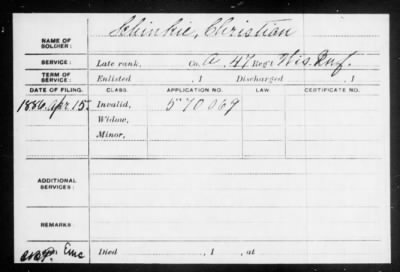 NAME OF SOLDIER: Schinkie, Christian
SERVICE: Late rank, Co. A, 47 Reg't Wis. Inf.
TERM OF SERVICE: Enlisted , 1 Discharged , 1
DATE OF FILING. CLASS. APPLICATION NO. LAW. CERTIFICATE NO.
1886 Apr. 15 Invalid, 570069
Widow,
Minor,
ADDITIONAL SERVICES:
REMARKS:
Died , 1 , at